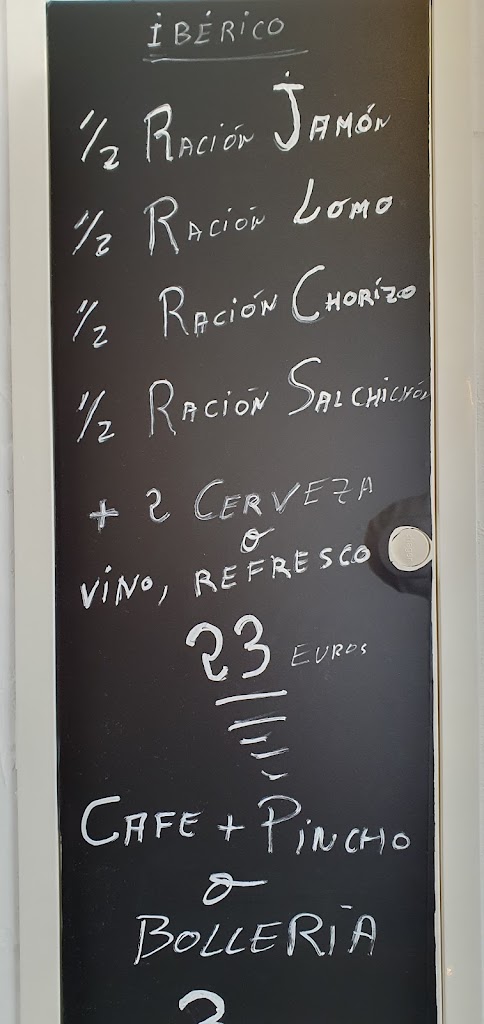 IBÉRICO
1/2 RACIÓN JAMÓN
1/2 RACIÓN LOMO
1/2 RACIÓN CHORIZO
1/2 RACIÓN SALCHICHÓN
+ 2 CERVEZA
o
VINO, REFRESCO
23 EUROS
CAFE + PINCHO
o
BOLLERIA